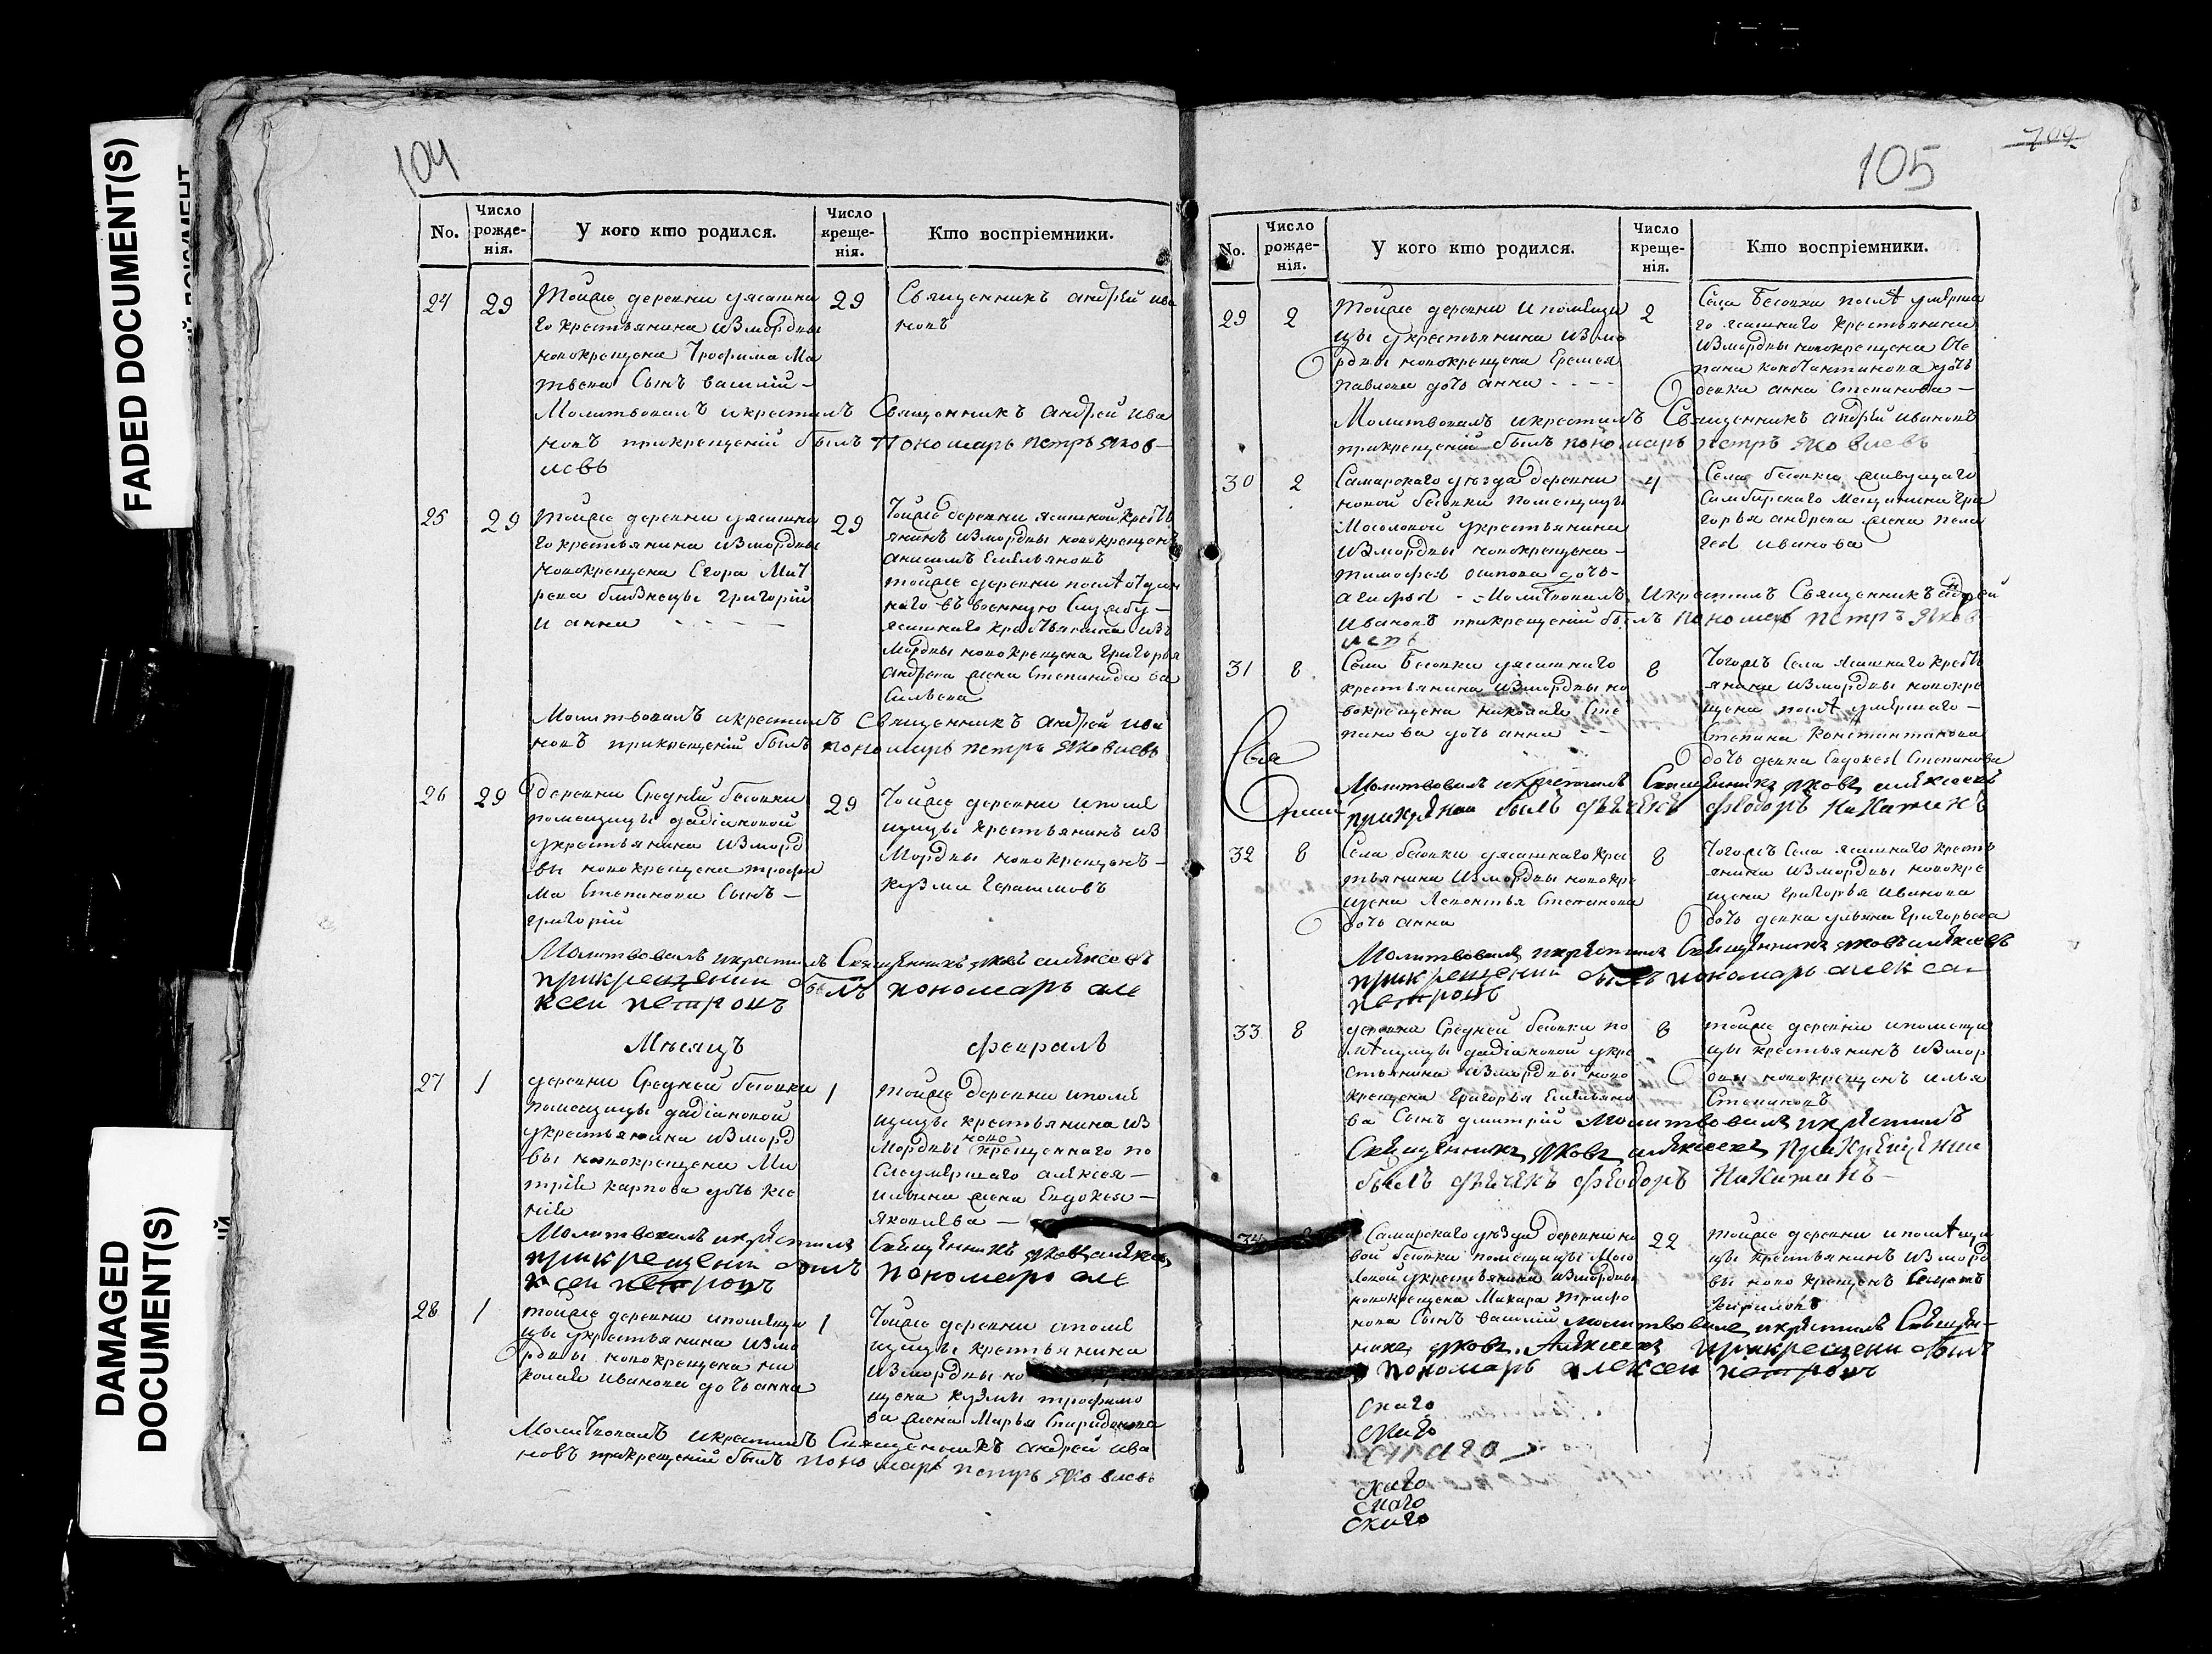 FADED DOCUMENT(S)
DAMAGED
DOCUMENT(S)
104
No.
Число
рожде-
нія.
У кого кто родился.
Число
креще-
нія.
Кто воспріемники.
24
29
Тойже деревни уясашна
го крестьянина измордвы
новокрещена Трофима Ма
твева Сынъ василий -
29
Священникъ андрей ива
новъ
Молитвовалъ икрестилъ Священникъ андрей ива
новъ прикрещеніи былъ Пономарь петръ яков-
левъ
25
29
Тойже деревни уясашна
го крестьянина измордвы
новокрещена Егора Мит
рева близнецы григорий
и анна
29
Тойже деревни ясашной крестъ
янинъ измордвы новокрещенъ
анисимъ Емельяновъ
тойже деревни послѣ отдан
наго въ военную Службу -
ясашнаго крестьянина изъ
мордвы новокрещена григорья
андрева жена Степанида ва
сильева
Молитвовалъ икрестилъ Священникъ андрей ива
новъ прикрещеніи былъ пономарь петръ яковлевъ
26
29
деревни Средней бесовки
помещицы дадіановой
укрестьянина изморд
вы новокрещена трофи
ма Степанова Сынъ -
григорій
29
Тойже деревни ипоме
щицы крестьянинъ из
Мордвы новокрещенъ -
кузма Герасимовъ
Молитвовалъ икрестилъ Священникъ яковъ алексеевъ
прикрещении былъ пономарь але
ксеи петровъ
Мѣсяцъ февралъ
27
1
деревни Средней бесовки
помещицы дадіановой
укрестьянина изморд
вы новокрещена Ми
трие карпова дочь ксе
ние
1
тойже деревни ипоме
щицы крестьянина из
Мордвы новокрещеннаго по
слеумершаго алексея -
ильина жена Евдокея -
яковлева -
Молитвовалъ икрестилъ Священникъ яковъ алексе
прикрещени былъ пономарь але
ксеи петровъ
28
1
тойже деревни ипомещи
цы укрестьянина измо
рдвы новокрещена ни
колае иванова дочь анна
1
Тойже деревни ипоме
щицы крестьянина
измордвы но
щена кузмы трофимо
ва жена Марья Спиридонова
Молитвовалъ икрестилъ Священникъ андрей ива
новъ прикрещеніи былъ пономарь петръ яковлевъ
105
No.
Число
рожде-
нія.
У кого кто родился.
Число
креще-
нія.
Кто воспріемники.
29
2
Тойже деревни ипомещи
цы укрестьянина измо
рдвы новокрещена Еремея
павлова дочь анна
2
Села Бесовки послѣ умерша
го ясашнаго крестьянина
измордвы новокрещена Сте
пана константинова дочь
девка анна Степанова -
Молитвовалъ икрестилъ Священникъ андрей ивановъ
прикрещеній былъ пономарь петръ яковлевъ
30
2
Самарскаго уѣзда деревни
новой бесовки помещицы
Мосоловой укрестьянина
измордвы новокрещена -
тимофея осипова дочь -
агафья - Молитвовалъ
4
Села бесовки живущаго
Симбирскаго Мещанина гри
горья андрева жена пела
гея иванова
икрестилъ Священникъ андрей
ивановъ прикрещеній былъ пономарь петръ яков
левъ
31
8
Села Бесовки уясашнаго
крестьянина измордвы но
вокрещена николая Сте
панова дочь анна
8
Тогожъ Села ясашнаго крестъ
янина измордвы новокре
щена послѣ умершаго -
Степана константинова
дочь девка Евдокея Степанова
Молитвовалъ икрестилъ Священникъ яковъ алексеевъ
былъ дьячекъ феодоръ Никитинъ
32
8
Села бесовки уясашнаго крес
тьянина измордвы новокре
щена Леонтья Степанова
дочь анна
8
Тогожъ Села ясашнаго кресть
янина измордвы новокре
щена григорья иванова
дочь девка ульяна григорьева
Молитвовалъ икрестилъ Священникъ яковъ алексеевъ
прикрещении былъ пономарь алексеи
петровъ
33
8
деревни Средней бесовки по
мѣщицы дадіановой укре
стьянина измордвы ново
крещена григорья Емельяно
ва Сынъ дмитрій
8
тойже деревни ипомещи
цы крестьянинъ измор
двы новокрещенъ илья
Степановъ
Молитвовалъ икрестилъ
Священникъ яковъ алексеевъ прикрещении
былъ дьячекъ феодоръ Никитинъ -
34
Самарскаго уѣзда деревни но
вой бесовки помещицы Мосо
ловой укрестьянина измордвы
новокрещена Макара трифо
нова Сынъ василий
22
тойже деревни ипомѣщи
цы крестьянинъ изморд
вы новокрещенъ
Молитвовалъ икрестилъ Священ-
никъ яковъ Алексеевъ прикрещени былъ
пономарь алексеи петровъ
скаго
скаго
скаго
скаго
скаго
скаго